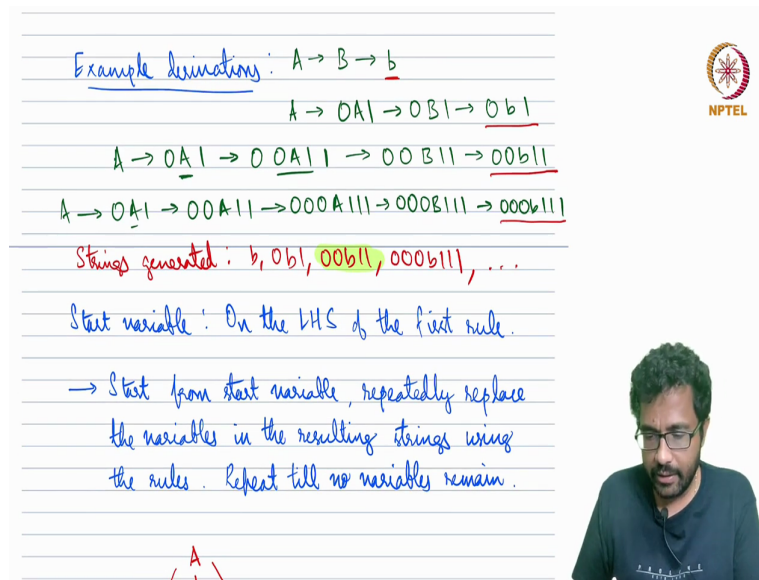 Example derivations: A → B → b
NPTEL
A → 0A1 → 0B1 → 0b1
A → 0A1 → 00A11 → 00B11 → 00b11
A → 0A1 → 00A11 → 000A111 → 000B111 → 000b111
Strings generated: b, 0b1, 00b11, 000b111, ...
Start variable: On the LHS of the first rule.
→ Start from start variable, repeatedly replace
the variables in the resulting strings using
the rules. Repeat till no variables remain.
A